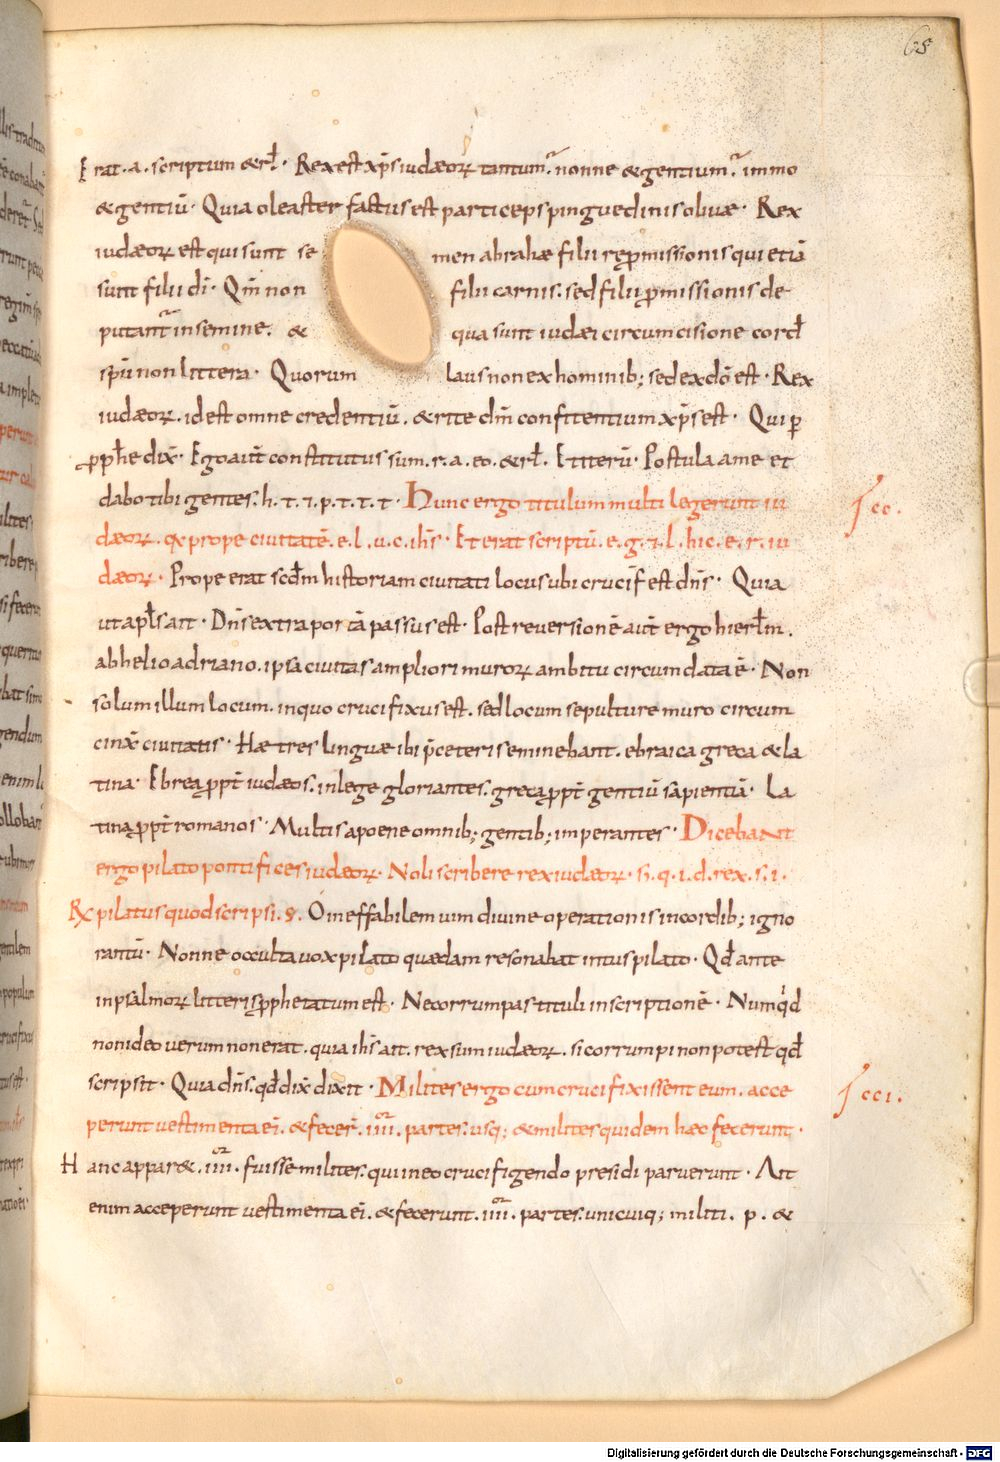 65
Erat .a. scriptum &rł. Rex est xp̄s iudæoꝝ tantum. nonne & gentium. immo
& gentiū. Quia oleaster factus est particeps pinguedinis olivæ. Rex
iudæoꝝ est qui sunt semen abrahæ filii reꝓmissionis qui etiā
sunt filii dī. Qm̄ non filii carnis. sed filii ꝓmissionis de
putant̄ in semine. & qua sunt iudæi circumcisione cord̄
sp̄u non littera. Quorum laus non ex hominib; sed ex dō est. Rex
iudæoꝝ. id est omne credentiū. & rite dn̄m confitentium xp̄s est. Qui ꝑ
ꝓph̄e dix̄. Ego aut̄ constitutus sum .r. a. eo. &rł. Et iterū. Postula a me et
dabo tibi gentes. h. t. ⁊. p. t. t. t. Hunc ergo titulum multi legerunt iu
dæoꝝ. qa prope civitatē. e. l. u. c. ih̄s. Et erat scriptū. e. g. ⁊. l. hic. e. r. iu
dæoꝝ. Prope erat scd̄m historiam civitati locus ubi crucif̄ est dn̄s. Quia
ut apl̄s ait. Dn̄s extra portā passus est. Post reversionē aut̄ ergo hierl̄m.
ab helio adriano. ipsa civitas ampliori muroꝝ ambitu circumdata ē. Non
solum illum locum. in quo crucifixus est. sed locum sepulture muro circum
cinx̄ civitatis. Hæ tres linguæ ibi p̄ceteris eminebant. ebraica greca & la
tina. Ebreą ꝓpt̄ iudæos. in lege gloriantes. greca ꝓpt̄ gentiū sapientiā. La
tina ꝓpt̄ romanos. Multis a poene omnib; gentib; imperantes. Dicebant
ergo pilato pontifices iudæoꝝ. Noli scribere rex iudæoꝝ. s. q. i. d. rex. s. i.
R̷x pilatus quod scripsi. s. O ineffabilem uim divine operationis in cordib; igno
rantū. Nonne occulta uox pilato quædam resonabat intus pilato. Qđ ante
in psalmoꝝ litteris ꝓphetatum est. Ne corrumpas tituli inscriptionē. Numqđ
non ideo verum non erat. quia ih̄s ait. rex sum iudæoꝝ. si corrumpi non potest qđ
scripsit. Quia dn̄s. qđ dix̄ dixit. Milites ergo cum crucifixissent eum. acce
perunt vestimenta eī. & fecer̄. iiii. partes. usq; & milites quidem hæc fecerunt.
Hanc appar&. iiii. fuisse milites. qui in eo crucifigendo presidi paruerunt. Ait
enim acceperunt vestimenta eī. & fecerunt. iiii. partes. unicuiq; militi. p. &
cc.
cci.
Digitalisierung gefördert durch die Deutsche Forschungsgemeinschaft - DFG